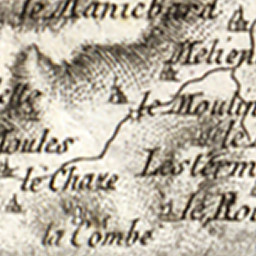 le Manichard
Meljen
elle
le Moulin
Moules
le
Lesterm
le Chaze
le Rou
la Combe